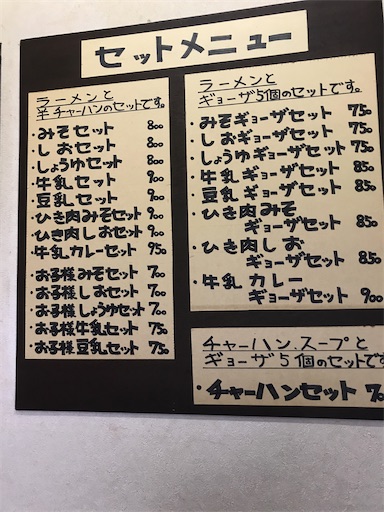 セットメニュー
ラーメンと
半チャーハンのセットです。
・みそセット 800
・しおセット 800
・しょうゆセット 800
・牛乳セット 900
・豆乳セット 900
・ひき肉みそセット 900
・ひき肉しおセット 900
・牛乳カレーセット 950
・お子様みそセット 700
・お子様しおセット 700
・お子様しょうゆセット 700
・お子様牛乳セット 750
・お子様豆乳セット 750
ラーメンと
ギョーザ5個のセットです。
・みそギョーザセット 750
・しおギョーザセット 750
・しょうゆギョーザセット 750
・牛乳ギョーザセット 850
・豆乳ギョーザセット 850
・ひき肉みそ
ギョーザセット 850
・ひき肉しお
ギョーザセット 850
・牛乳カレー
ギョーザセット 900
チャーハン.スープと
ギョーザ5個のセットです
・チャーハンセット